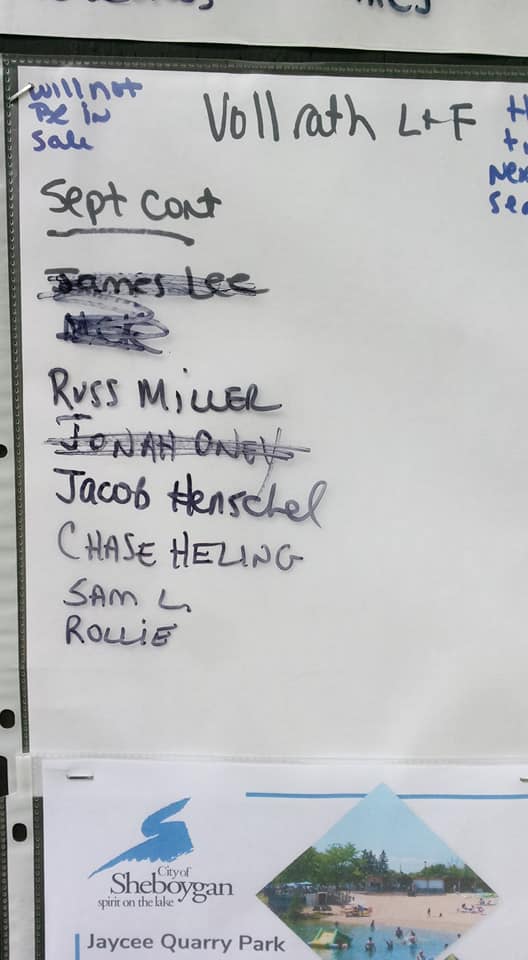 will not
Be in
Sale
Vollrath L+F
Next
Sept Cont
James Lee
Russ Miller
Jonah Oney
Jacob Henschel
CHASE HELING
SAM L.
ROLLiE
City of
Sheboygan
spirit on the lake
Jaycee Quarry Park